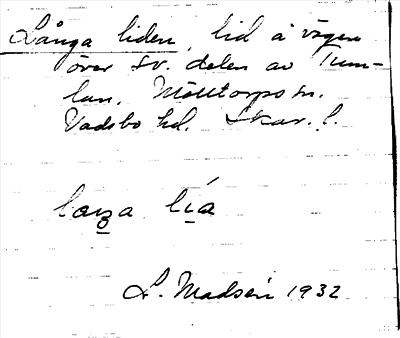 Långa liden, lid å vägen
över sv. delen av Tum-
lan, Mölltorps sn.
Vadsbo hd. Skar. l.
laŋa lia
L. Madsén 1932